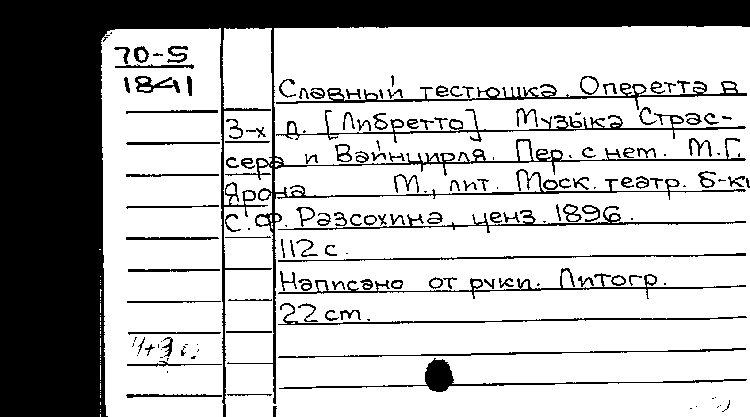 70-5
1841
Славный тестюшка. Оперетта в
3-х д. [Либретто] Музыка Страс-
сера и Вайнцирля. Пер. с нем. М.Г.
Ярона. М., лит. Моск. театр. б-ки
С.Ф. Разсохина, ценз. 1896.
112 с.
Написано от руки. Литогр.
22 cm.